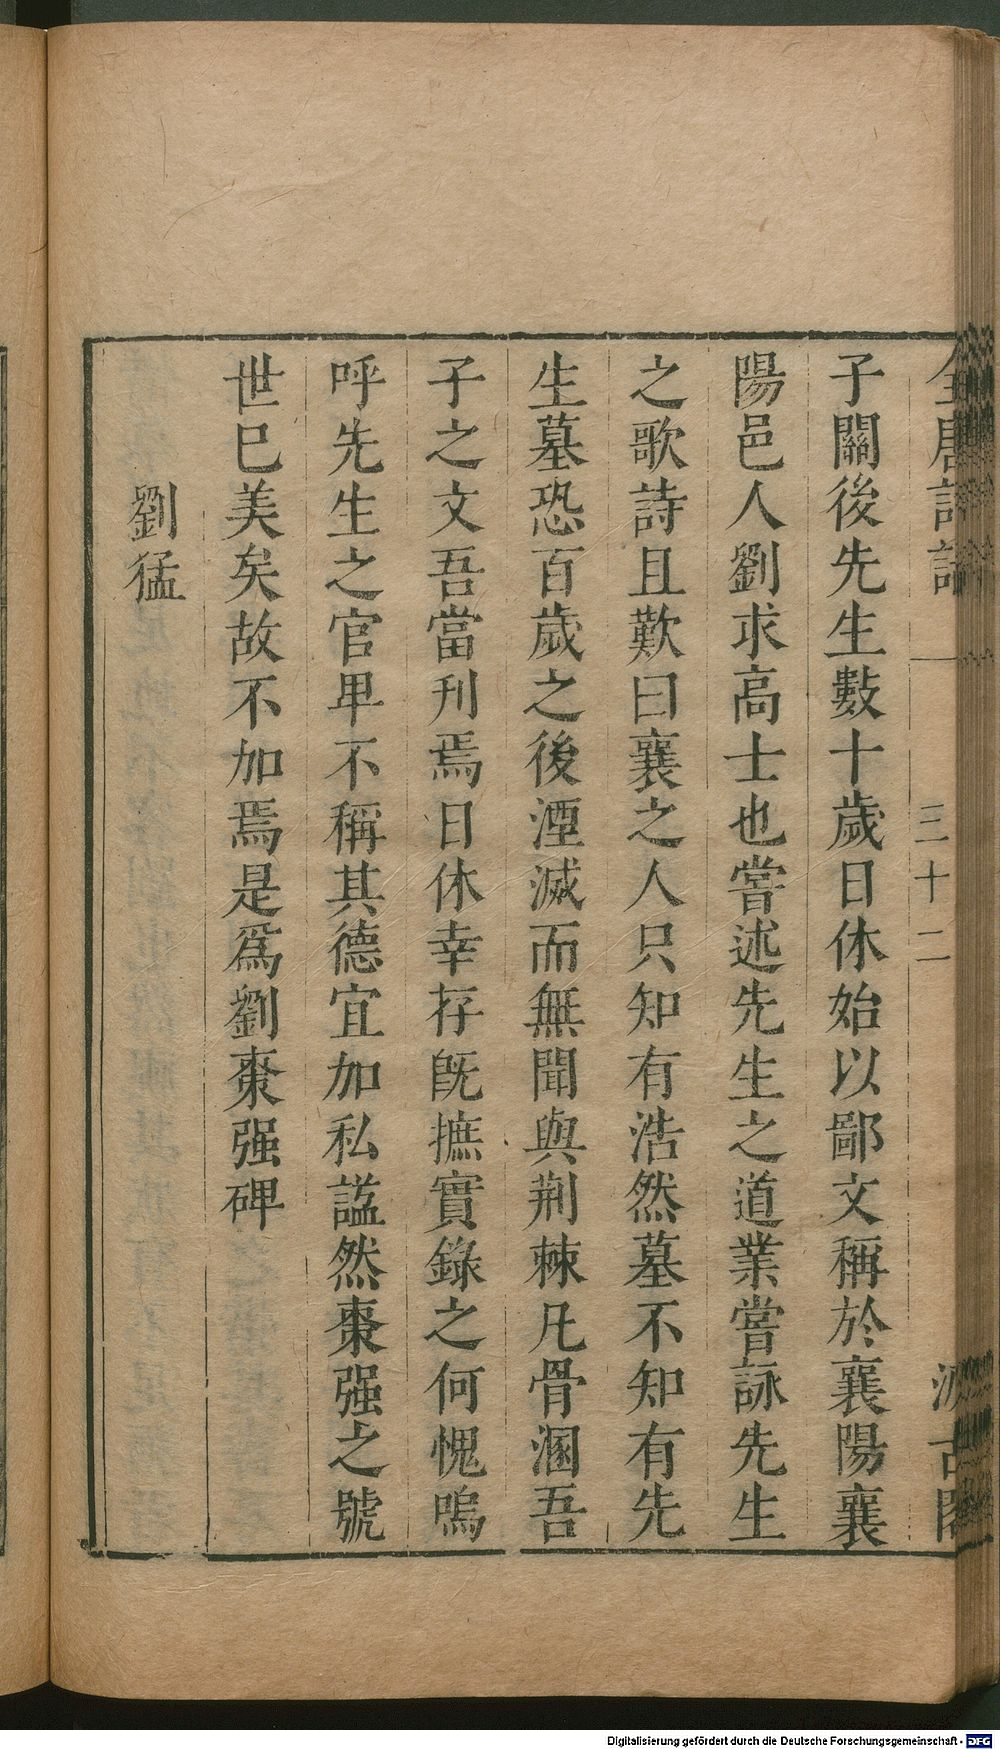 全唐詩話
三十二
汲古閣
子關後先生數十歲日休始以鄙文稱於襄陽襄
陽邑人劉求高士也嘗述先生之道業嘗詠先生
之歌詩且歎曰襄之人只知有浩然墓不知有先
生墓恐百歲之後湮滅而無聞與荆棘凡骨溷吾
子之文吾當刊焉日休幸存旣摭實錄之何愧嗚
呼先生之官卑不稱其德宜加私諡然棗强之號
世巳美矣故不加焉是爲劉棗强碑
劉猛
Digitalisierung gefördert durch die Deutsche Forschungsgemeinschaft - DFG